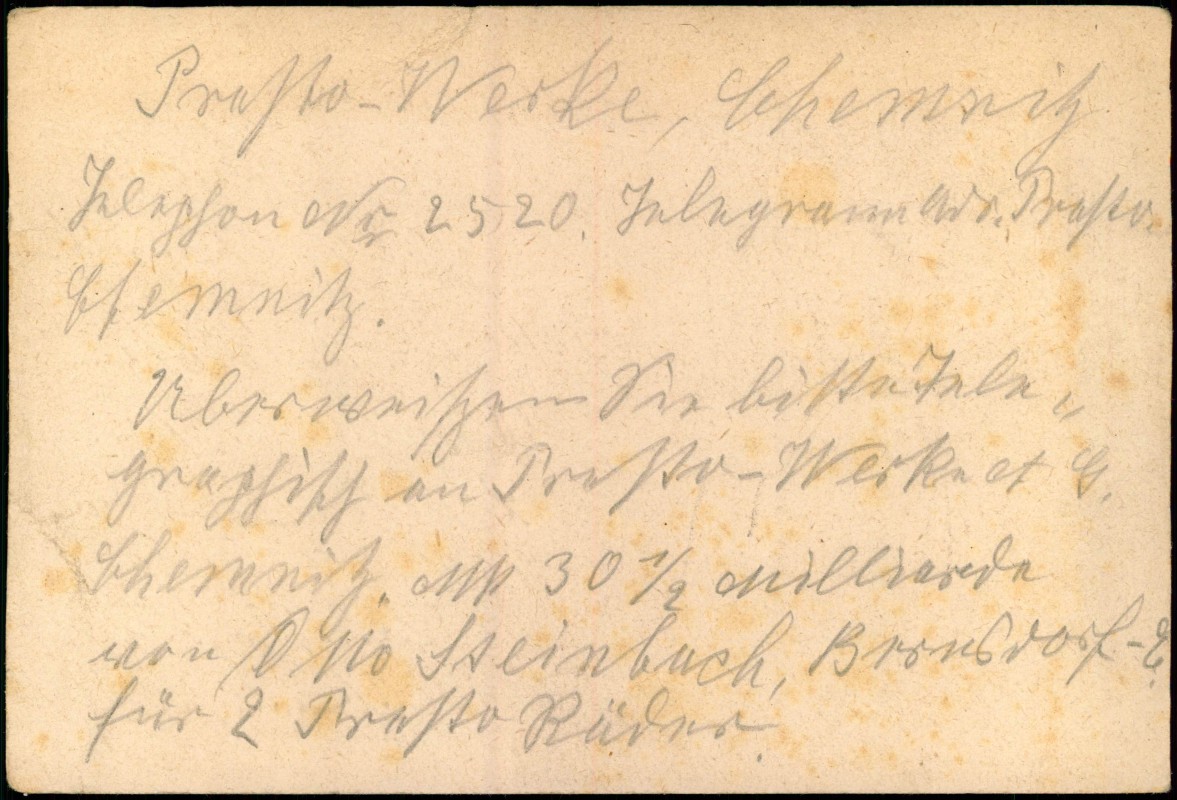 Presto-Werke, Chemnitz
Telephon Nr 2520. Telegramm Adr. Presto.
Chemnitz.
Überweisen Sie bitte Tele„
graphisch an Presto-Werke A G.
Chemnitz. Mk 30 1/2 Milliarde
von Otto Steinbach, Bernsdorf-E.
für 2 Presto Räder.